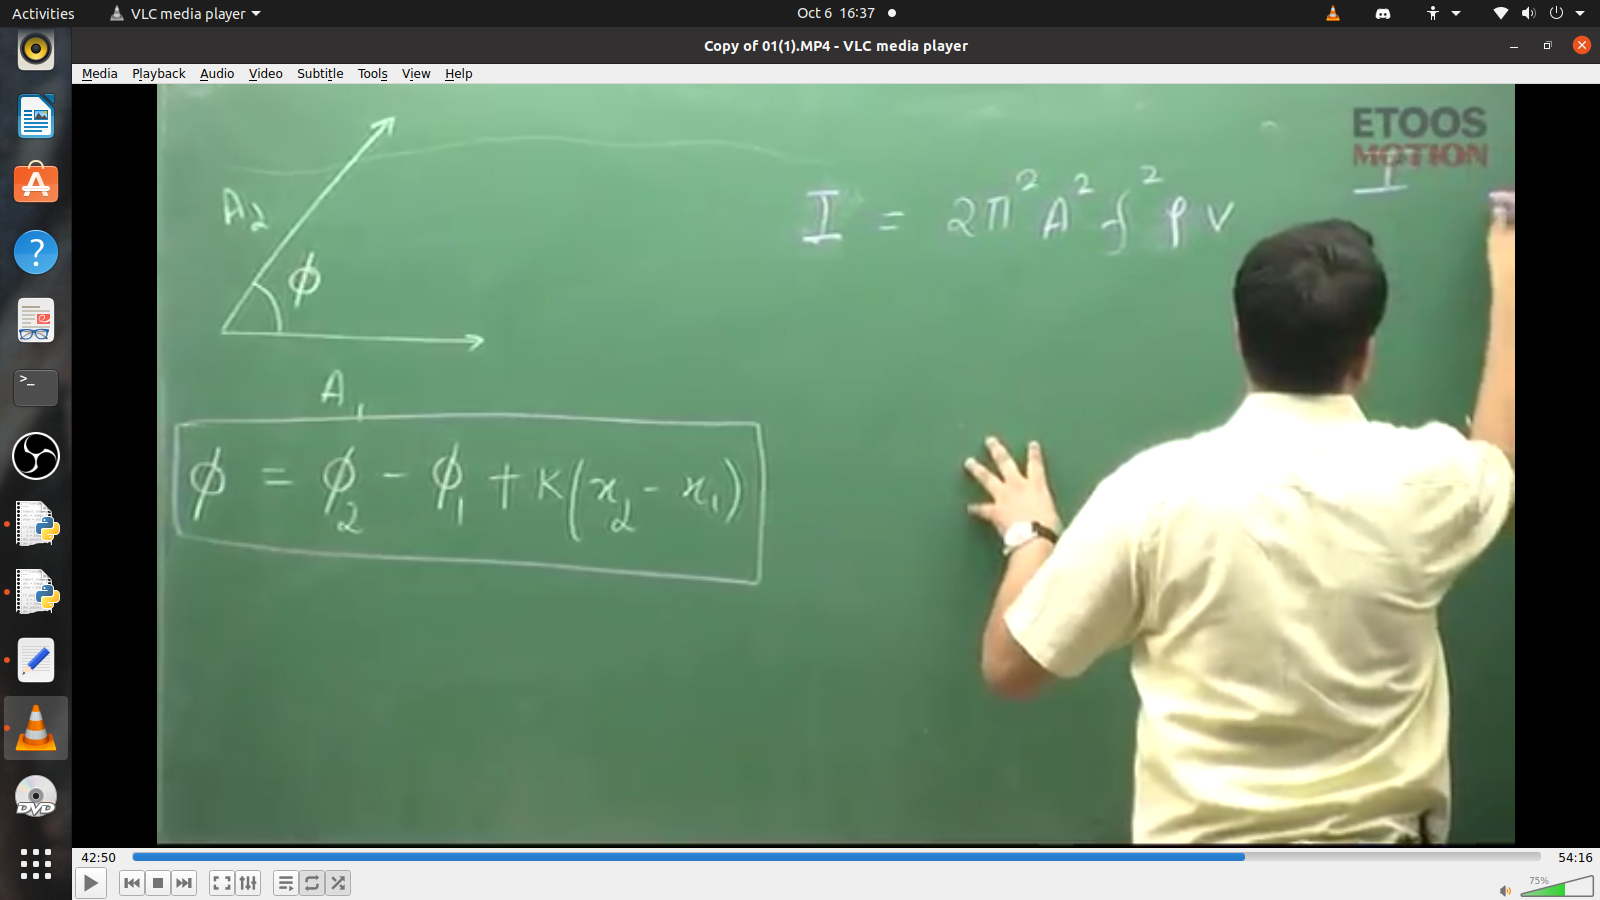 Activities VLC media player Oct 6 16:37
Copy of 01(1).MP4 - VLC media player
Media Playback Audio Video Subtitle Tools View Help
ETOOS
MOTION
A2
ϕ
A₁
I = 2π²A²f²ρv
I
ϕ = ϕ₂ - ϕ₁ + K(x₂ - x₁)
42:50 54:16
75%
>_
?
DVD